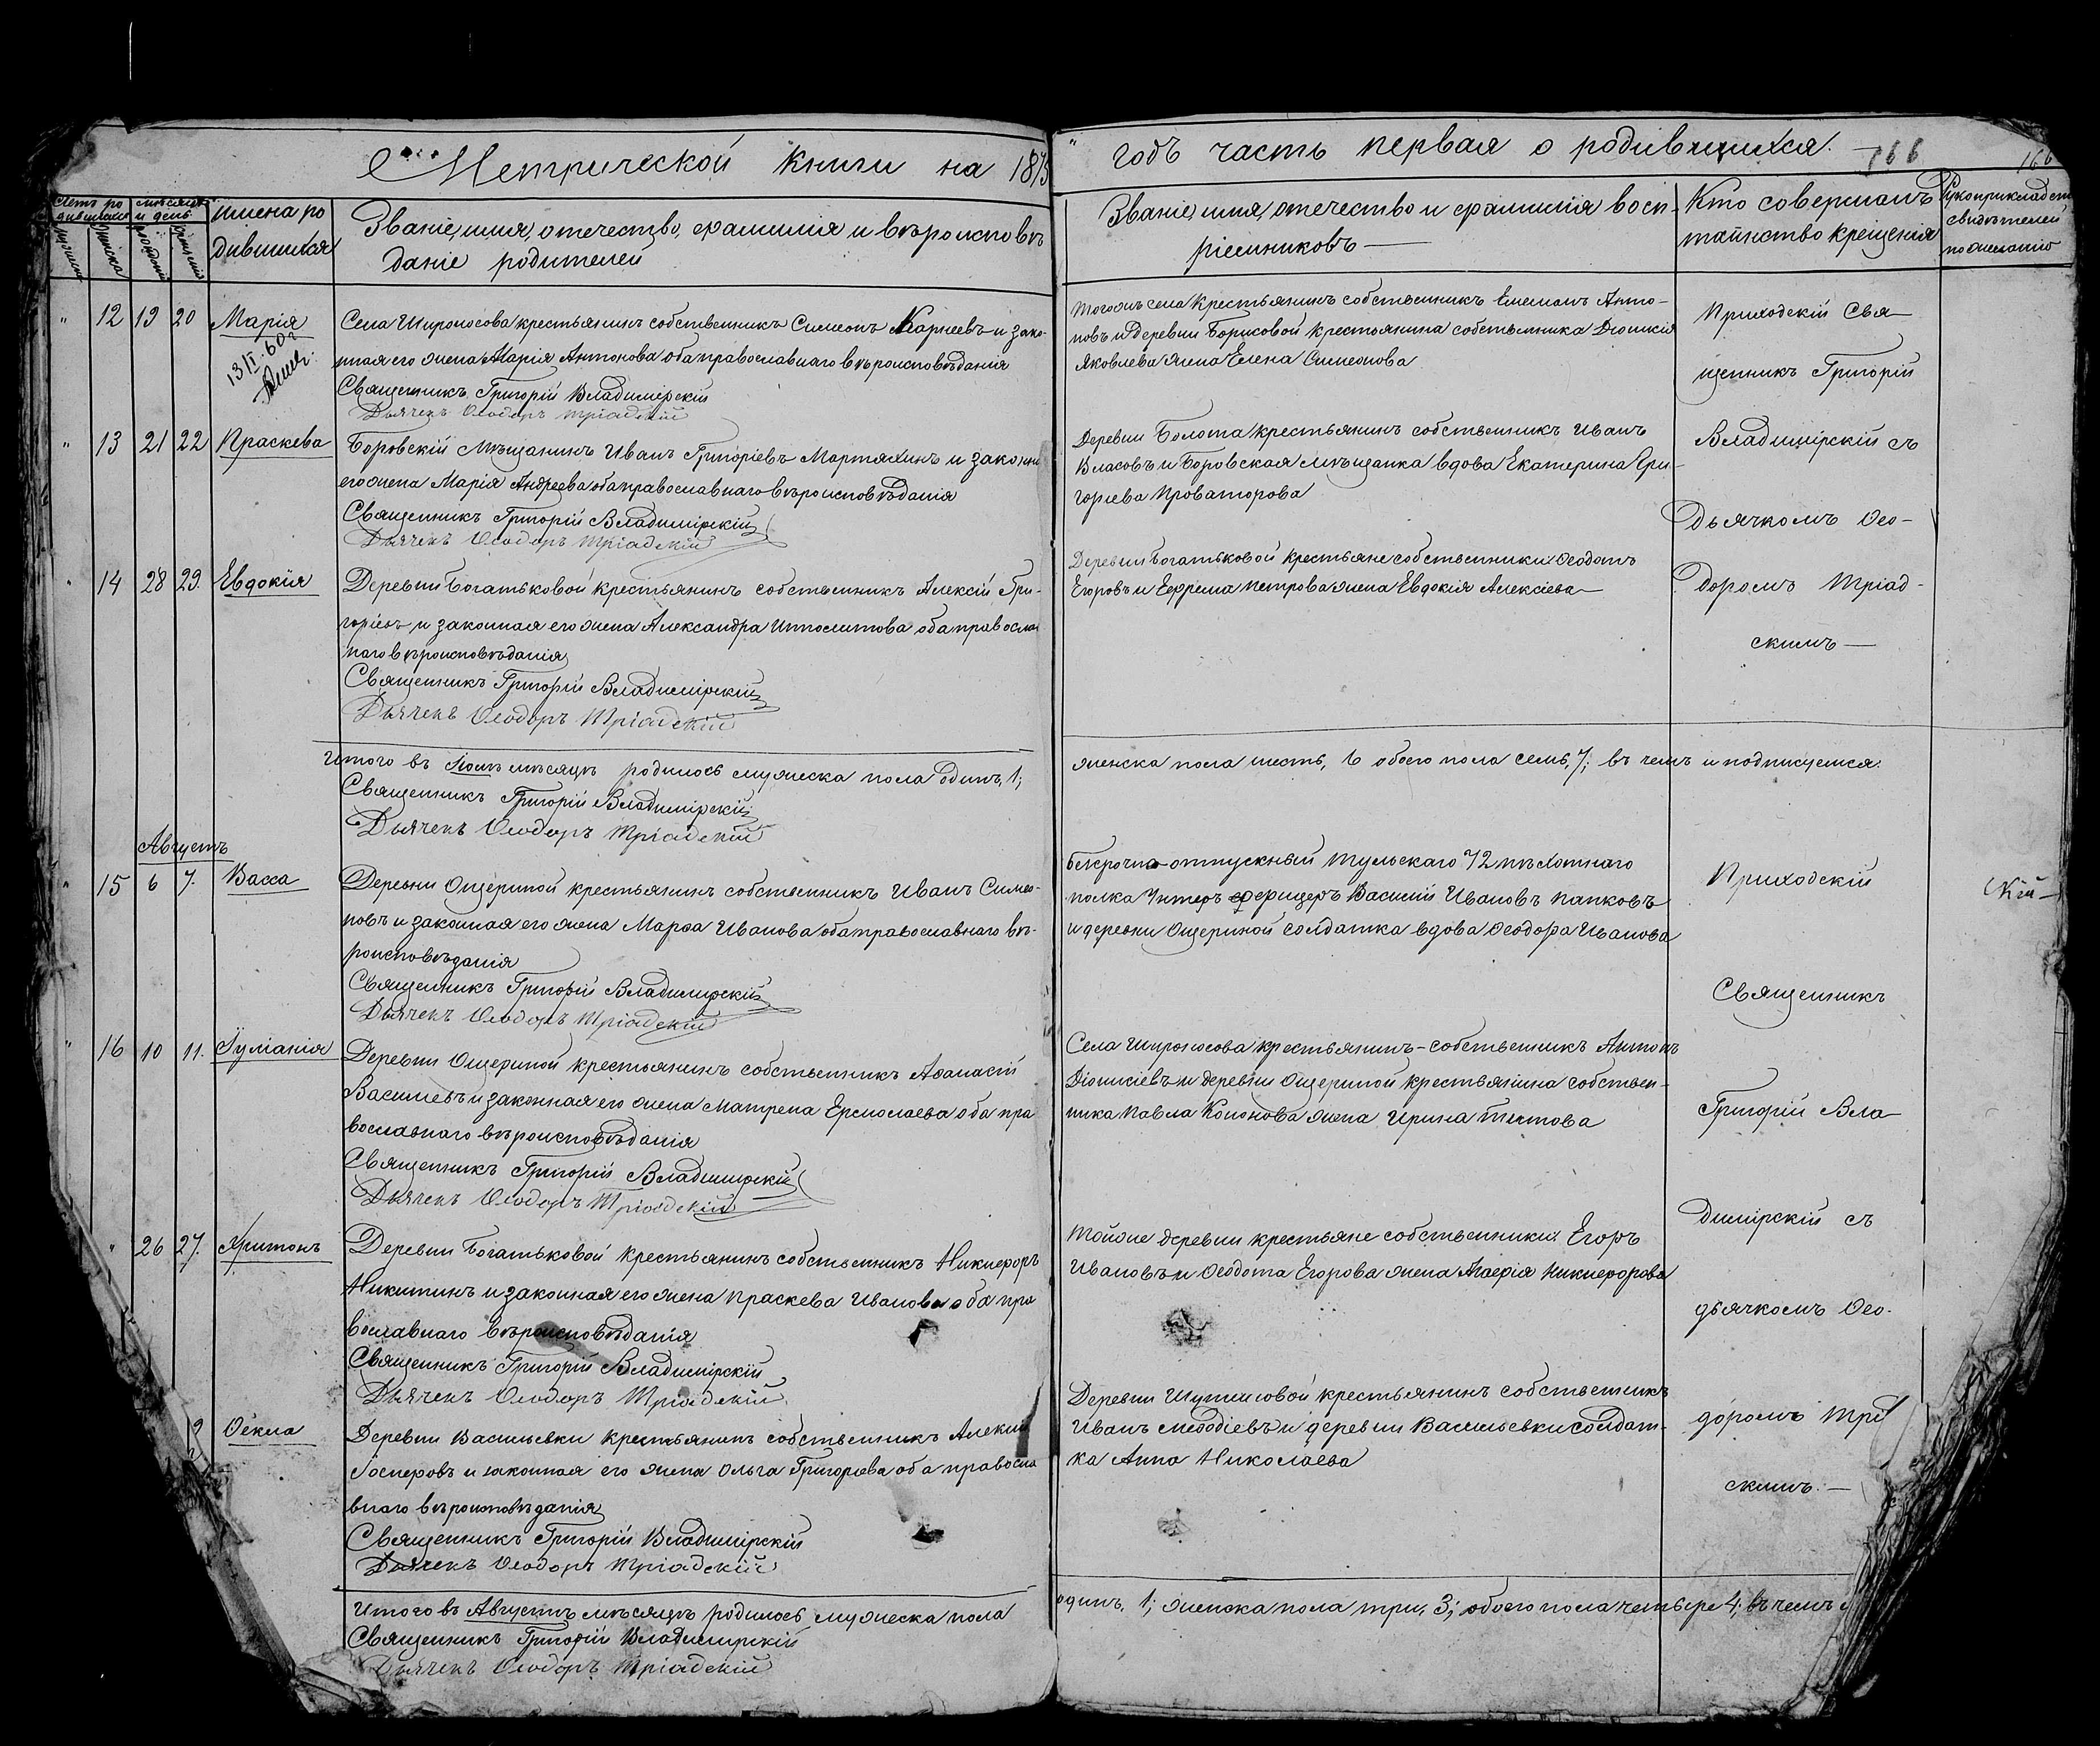 Метрической книги на 1875
годъ часть первая о родившихся.
166
166
Счетъ ро
дившихся
мѣсяцъ
и день
имена ро
дившихся
Званіе, имя, отечество, фамилія и вѣроисповѣ
даніе родителей
Званіе, имя, отечество и фамилія восп-
ріемниковъ
Кто совершалъ
таинство крещенія
Рукоприкладст
свидѣтелей
по желанію
" 12 19 20 Марія
Села Широносова крестьянинъ собственникъ Симеонъ Карнеевъ и зако-
нная его жена Марія Антонова оба православнаго вѣроисповѣданія
Священникъ Григорій Владимірскій
Дьячекъ Ѳеодоръ Тріадскій
тогожъ села крестьянинъ собственникъ Анто-
новъ и деревни Борисовой крестьянина собственника
Яковлева жена Елена Симеонова
Приходскій Свя
щенникъ Григорій
" 13 21 22 Праскева
Боровскій мѣщанинъ Иванъ Григоріевъ Мартяхинъ и законн
его жена Марія Андреева оба православнаго вѣроисповѣданія
Священникъ Григорій Владимірскій
Дьячекъ Ѳеодоръ Тріадскій
Деревни Болота крестьянинъ собственникъ Иванъ
Власовъ и Боровская мѣщанка вдова Екатерина Гри-
горіева Проваторова
Владимірскій съ
Дьячкомъ Ѳео-
" 14 28 29. Евдокія
Деревни Богатьковой крестьянинъ собственникъ Алексій Гри-
горіевъ и законная его жена Александра Ипполитова оба правосла
наго вѣроисповѣданія
Священникъ Григорій Владимірскій
Дьячекъ Ѳеодоръ Тріадскій
Деревни Богатьковой крестьяне собственники Ѳеодотъ
Егоровъ и Ефрема Петрова жена Евдокія Алексіева
Доромъ Тріад-
скимъ
Итого въ Іюлѣ мѣсяцѣ родилось мужеска пола одинъ, 1;
женска пола шесть, 6 обоего пола семь, 7; въ чемъ и подписуемся.
Священникъ Григорій Владимірскій
Дьячекъ Ѳеодоръ Тріадскій
Августъ
" 15 6 7. Васса
Деревни Ощериной крестьянинъ собственникъ Иванъ Симео-
новъ и законная его жена Марѳа Иванова оба православнаго вѣ-
роисповѣданія
Священникъ Григорій Владимірскій
Дьячекъ Ѳеодоръ Тріадскій
безсрочно-отпускный Тульскаго 72 пѣхотнаго
полка Унтеръ офицеръ Василій Ивановъ Папковъ
и деревни Ощериной солдатка вдова Ѳеодора Иванова
Приходскій
Священникъ
" 16 10 11. Іуліанія
Деревни Ощериной крестьянинъ собственникъ Аѳанасій
Васильевъ и законная его жена Матрена Ермолаева оба пра
вославнаго вѣроисповѣданія
Священникъ Григорій Владимірскій
Дьячекъ Ѳеодоръ Тріадскій
Села Широносова крестьянинъ-собственникъ Антонъ
Діонисіевъ и деревни Ощериной крестьянина собствен-
ника Павла Кононова жена Ирина Титова
Григорій Вла
димірскій съ
" 26 27. Аритонъ
Деревни Богатьковой крестьянинъ собственникъ Никифоръ
Никитинъ и законная его жена Праскева Иванова оба пра
вославнаго вѣроисповѣданія
Священникъ Григорій Владимірскій
Дьячекъ Ѳеодоръ Тріадскій
Тойже деревни крестьяне собственники: Егоръ
Ивановъ и Ѳеодота Егорова жена Агафія Никифорова
дьячкомъ Ѳео-
Ѳекла
Деревни Васильевки крестьянинъ собственникъ Алексій
и законная его жена Ольга Григоріева оба правосла
внаго вѣроисповѣданія
Священникъ Григорій Владимірскій
Дьячекъ Ѳеодоръ Тріадскій
Деревни крестьянинъ собственникъ
Иванъ Меѳодіевъ и деревни Васильевки солдат-
ка Анна Николаева
доромъ Трі
скимъ.
Итого въ Августѣ мѣсяцѣ родилось мужеска пола
одинъ, 1; женска пола три, 3; обоего пола четыре 4; въ чемъ
Священникъ Григорій Владимірскій
Дьячекъ Ѳеодоръ Тріадскій